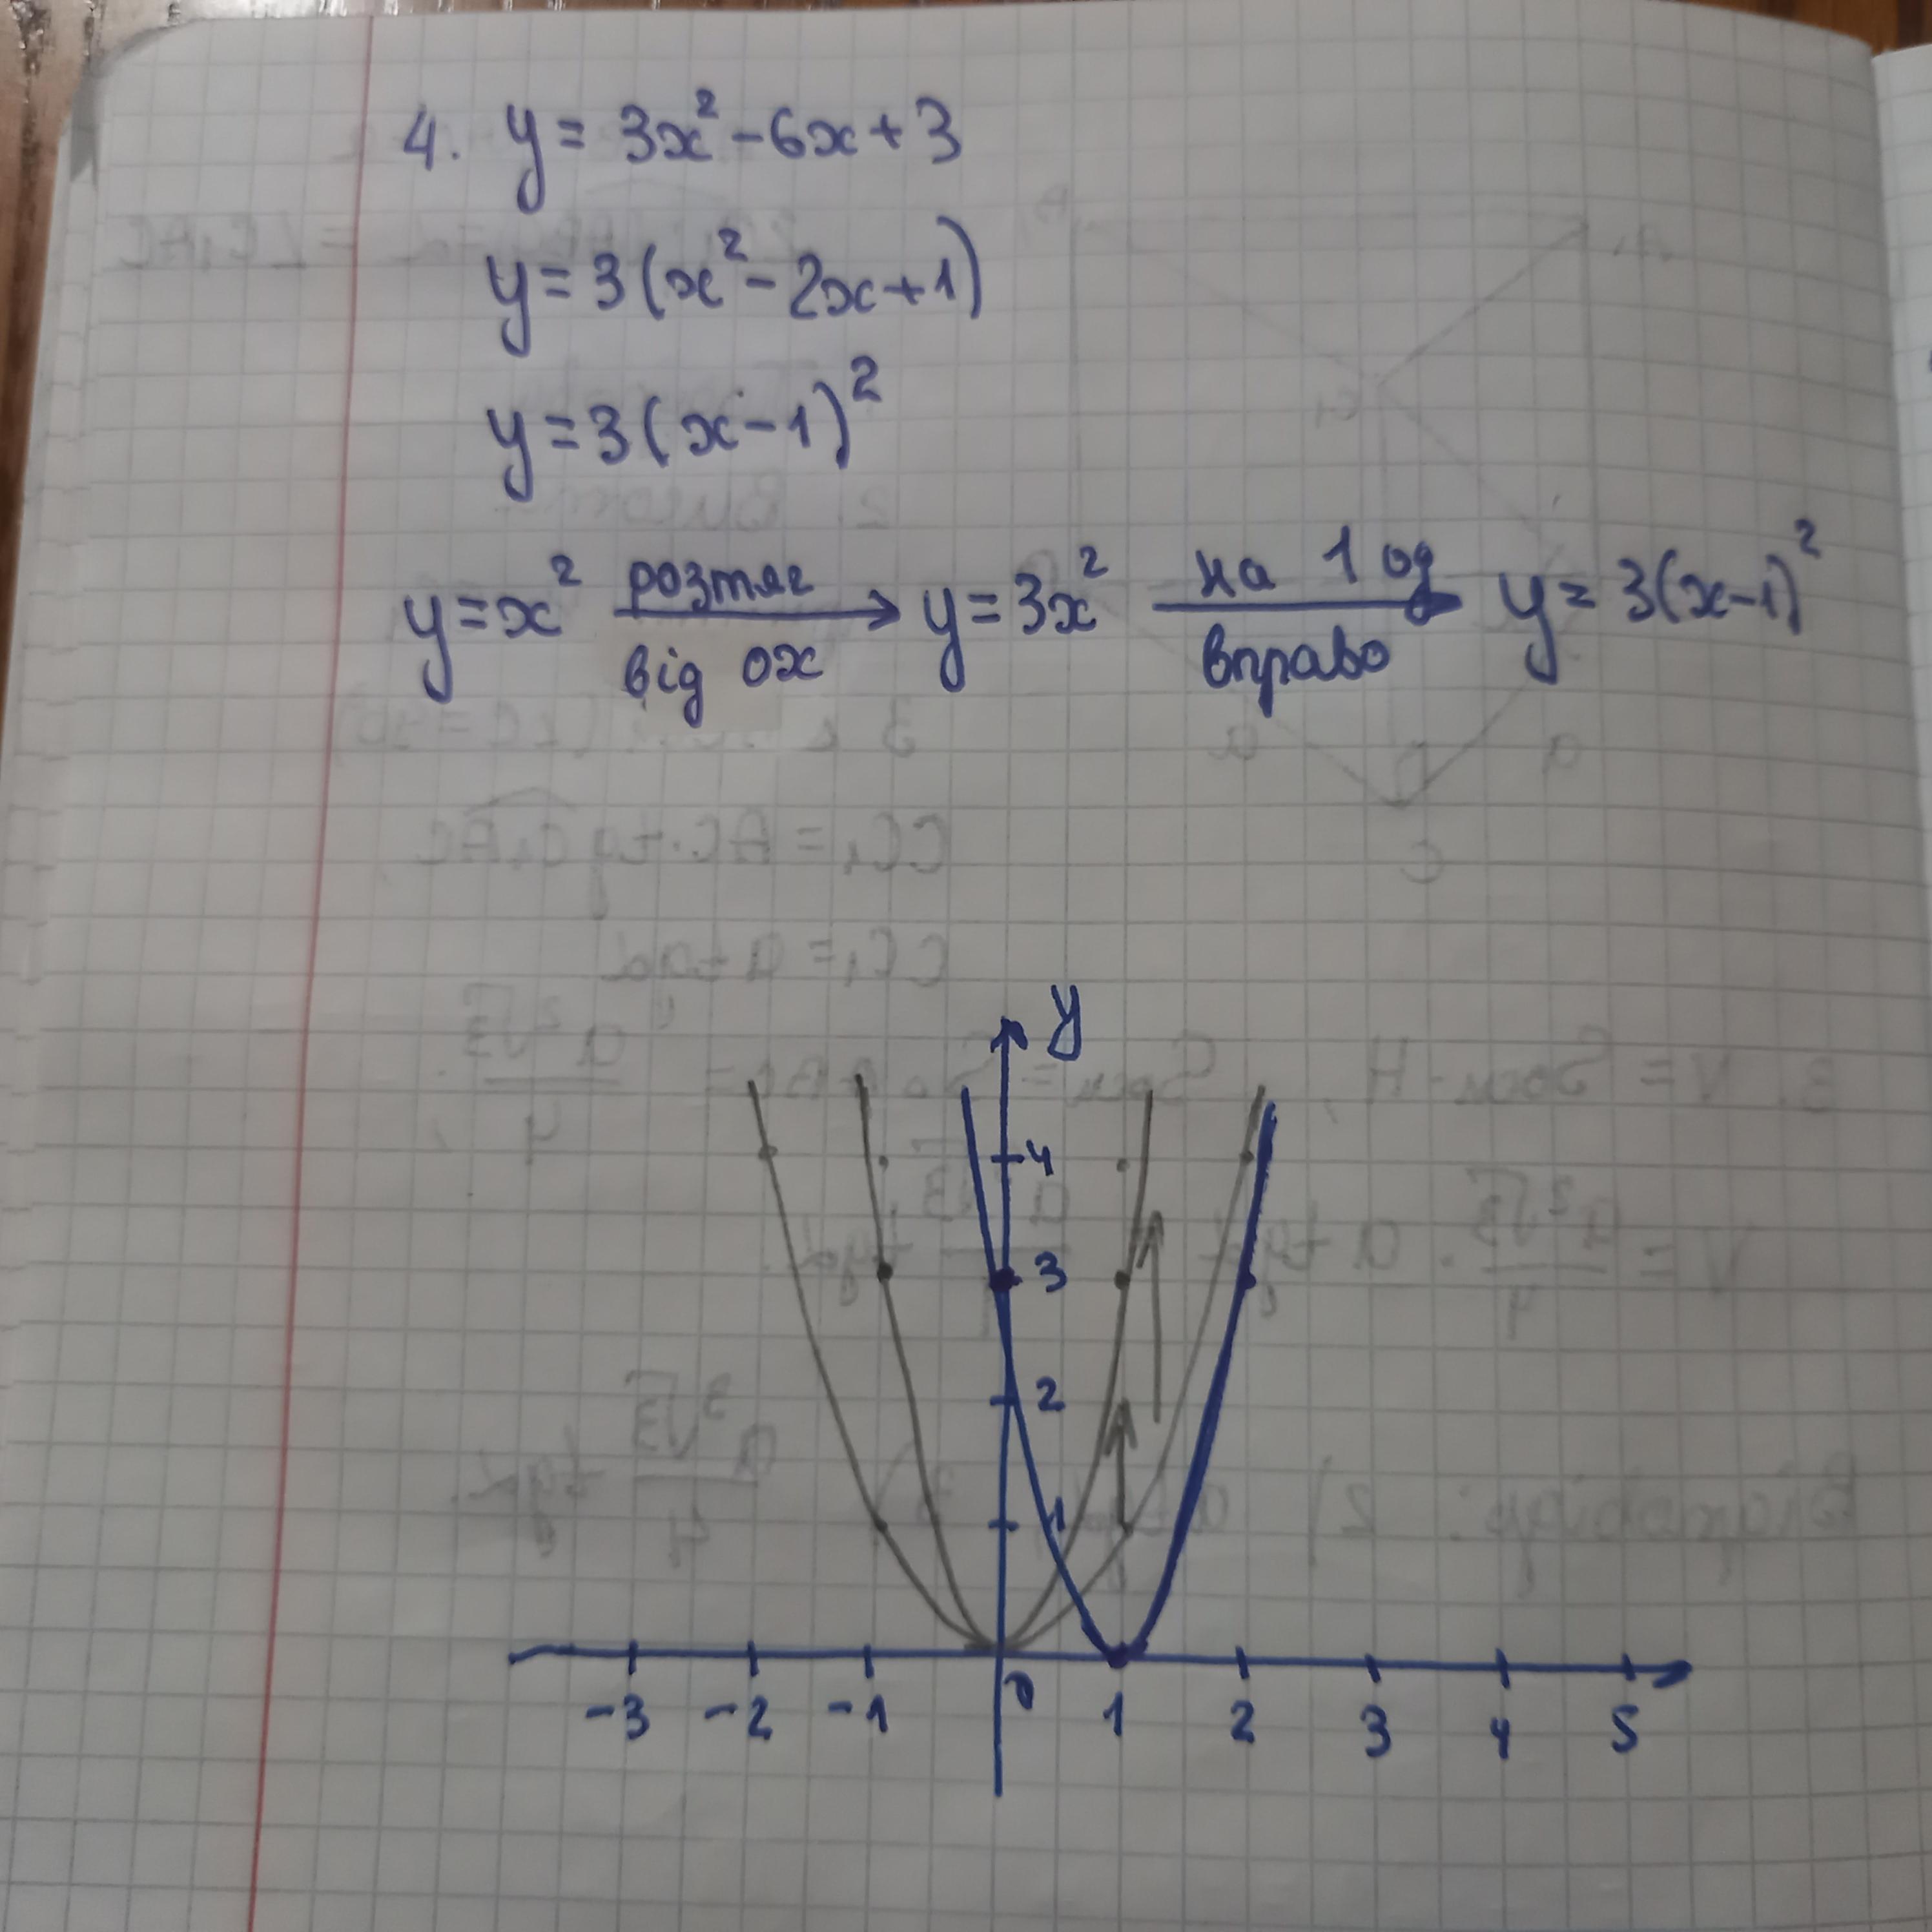 4. y = 3x² - 6x + 3
y = 3(x² - 2x + 1)
y = 3(x - 1)²
y = x² розтяг від ox → y = 3x² на 1 од вправо → y = 3(x-1)²
y
4
3
2
1
-3 -2 -1 0 1 2 3 4 5